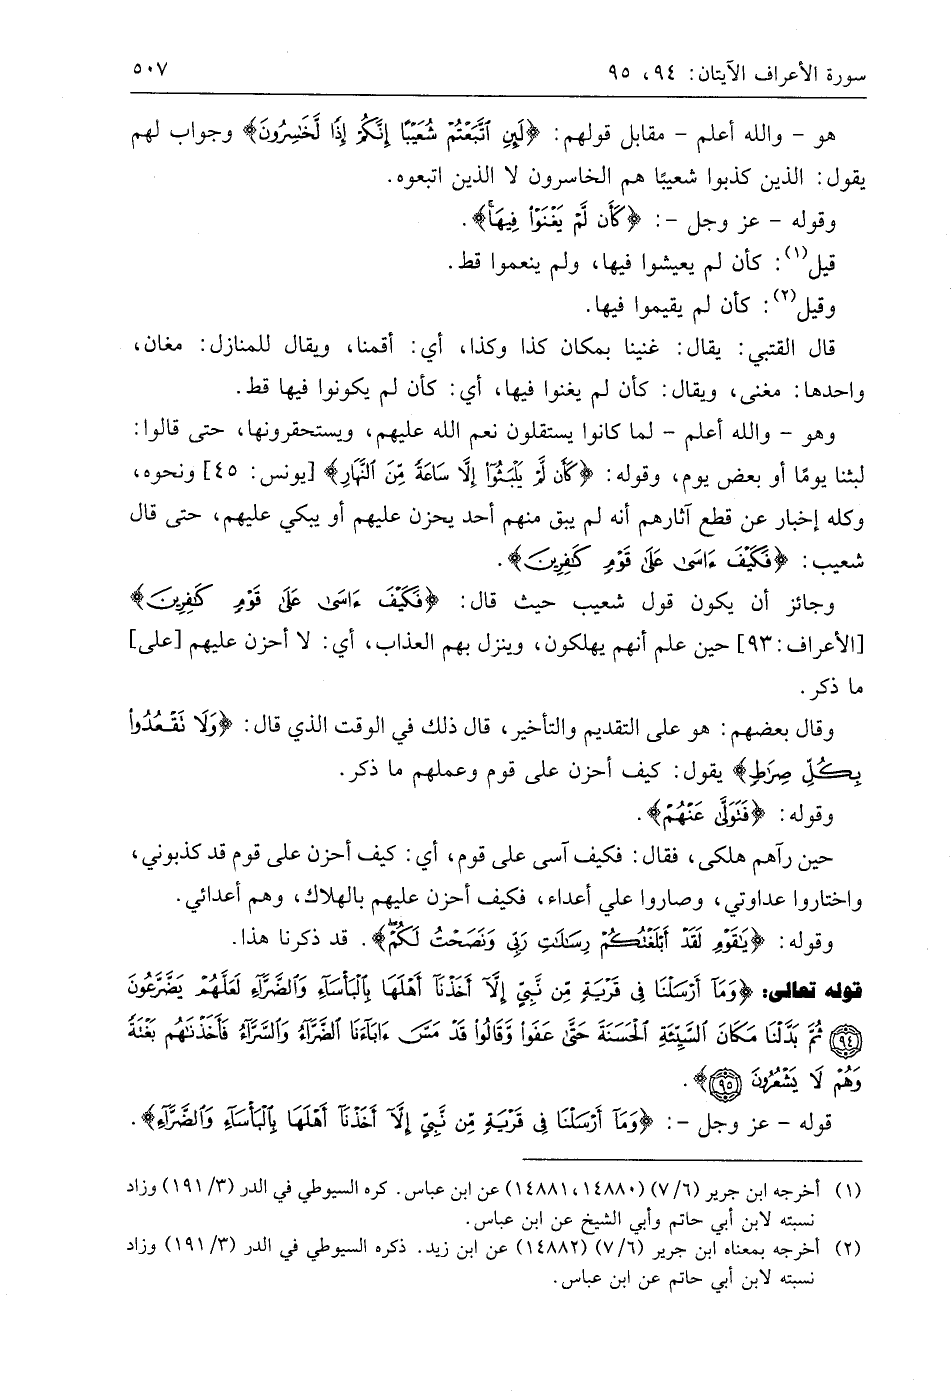 سورة الأعراف الآيتان: ٩٤، ٩٥
٥٠٧
هو - والله أعلم - مقابل قولهم: ﴿لَئِنِ ٱتَّبَعْتُمْ شُعَيْبًا إِنَّكُمْ إِذًا لَّخَٰسِرُونَ﴾ وجواب لهم
يقول: الذين كذبوا شعيبًا هم الخاسرون لا الذين اتبعوه.
وقوله - عز وجل -: ﴿كَأَن لَّمْ يَغْنَوْا۟ فِيهَا﴾.
قيل(١): كأن لم يعيشوا فيها، ولم ينعموا قط.
وقيل(٢): كأن لم يقيموا فيها.
قال القتبي: يقال: غنينا بمكان كذا وكذا، أي: أقمنا، ويقال للمنازل: مغان،
واحدها: مغنى، ويقال: كأن لم يغنوا فيها، أي: كأن لم يكونوا فيها قط.
وهو - والله أعلم - لما كانوا يستقلون نعم الله عليهم، ويستحقرونها، حتى قالوا:
لبثنا يومًا أو بعض يوم، وقوله: ﴿كَأَن لَّمْ يَلْبَثُوٓا۟ إِلَّا سَاعَةً مِّنَ ٱلنَّهَارِ﴾ [يونس: ٤٥] ونحوه،
وكله إخبار عن قطع آثارهم أنه لم يبق منهم أحد يحزن عليهم أو يبكي عليهم، حتى قال
شعيب: ﴿فَكَيْفَ ءَاسَىٰ عَلَىٰ قَوْمٍ كَٰفِرِينَ﴾.
وجائز أن يكون قول شعيب حيث قال: ﴿فَكَيْفَ ءَاسَىٰ عَلَىٰ قَوْمٍ كَٰفِرِينَ﴾
[الأعراف: ٩٣] حين علم أنهم يهلكون، وينزل بهم العذاب، أي: لا أحزن عليهم [على]
ما ذكر.
وقال بعضهم: هو على التقديم والتأخير، قال ذلك في الوقت الذي قال: ﴿وَلَا تَقْعُدُوا۟
بِكُلِّ صِرَٰطٍ﴾ يقول: كيف أحزن على قوم وعملهم ما ذكر.
وقوله: ﴿فَتَوَلَّىٰ عَنْهُمْ﴾.
حين رآهم هلكى، فقال: فكيف آسى على قوم، أي: كيف أحزن على قوم قد كذبوني،
واختاروا عداوتي، وصاروا علي أعداء، فكيف أحزن عليهم بالهلاك، وهم أعدائي.
وقوله: ﴿يَٰقَوْمِ لَقَدْ أَبْلَغْتُكُمْ رِسَٰلَٰتِ رَبِّى وَنَصَحْتُ لَكُمْ﴾. قد ذكرنا هذا.
قوله تعالى: ﴿وَمَآ أَرْسَلْنَا فِى قَرْيَةٍ مِّن نَّبِىٍّ إِلَّآ أَخَذْنَآ أَهْلَهَا بِٱلْبَأْسَآءِ وَٱلضَّرَّآءِ لَعَلَّهُمْ يَضَّرَّعُونَ
٩٤ ثُمَّ بَدَّلْنَا مَكَانَ ٱلسَّيِّئَةِ ٱلْحَسَنَةَ حَتَّىٰ عَفَوا۟ وَّقَالُوا۟ قَدْ مَسَّ ءَابَآءَنَا ٱلضَّرَّآءُ وَٱلسَّرَّآءُ فَأَخَذْنَٰهُم بَغْتَةً
وَهُمْ لَا يَشْعُرُونَ ٩٥﴾.
قوله - عز وجل -: ﴿وَمَآ أَرْسَلْنَا فِى قَرْيَةٍ مِّن نَّبِىٍّ إِلَّآ أَخَذْنَآ أَهْلَهَا بِٱلْبَأْسَآءِ وَٱلضَّرَّآءِ﴾.
(١) أخرجه ابن جرير (٧/٦) (١٤٨٨٠، ١٤٨٨١) عن ابن عباس. كره السيوطي في الدر (١٩١/٣) وزاد
نسبته لابن أبي حاتم وأبي الشيخ عن ابن عباس.
(٢) أخرجه بمعناه ابن جرير (٧/٦) (١٤٨٨٢) عن ابن زيد. ذكره السيوطي في الدر (١٩١/٣) وزاد
نسبته لابن أبي حاتم عن ابن عباس.